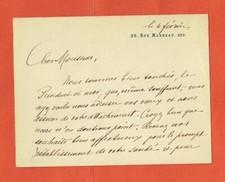 le 6 février
28, Rue Marbeau, XVI
Cher Monsieur,
Nous sommes bien touchés, le
Président et moi, que, même souffrant, vous
ayez voulu nous adresser vos vœux et nous
de votre attachement. Croyez bien que
nous n'en doutions point. Recevez nos
souhaits bien affectueux pour le prompt
rétablissement de votre santé et pour